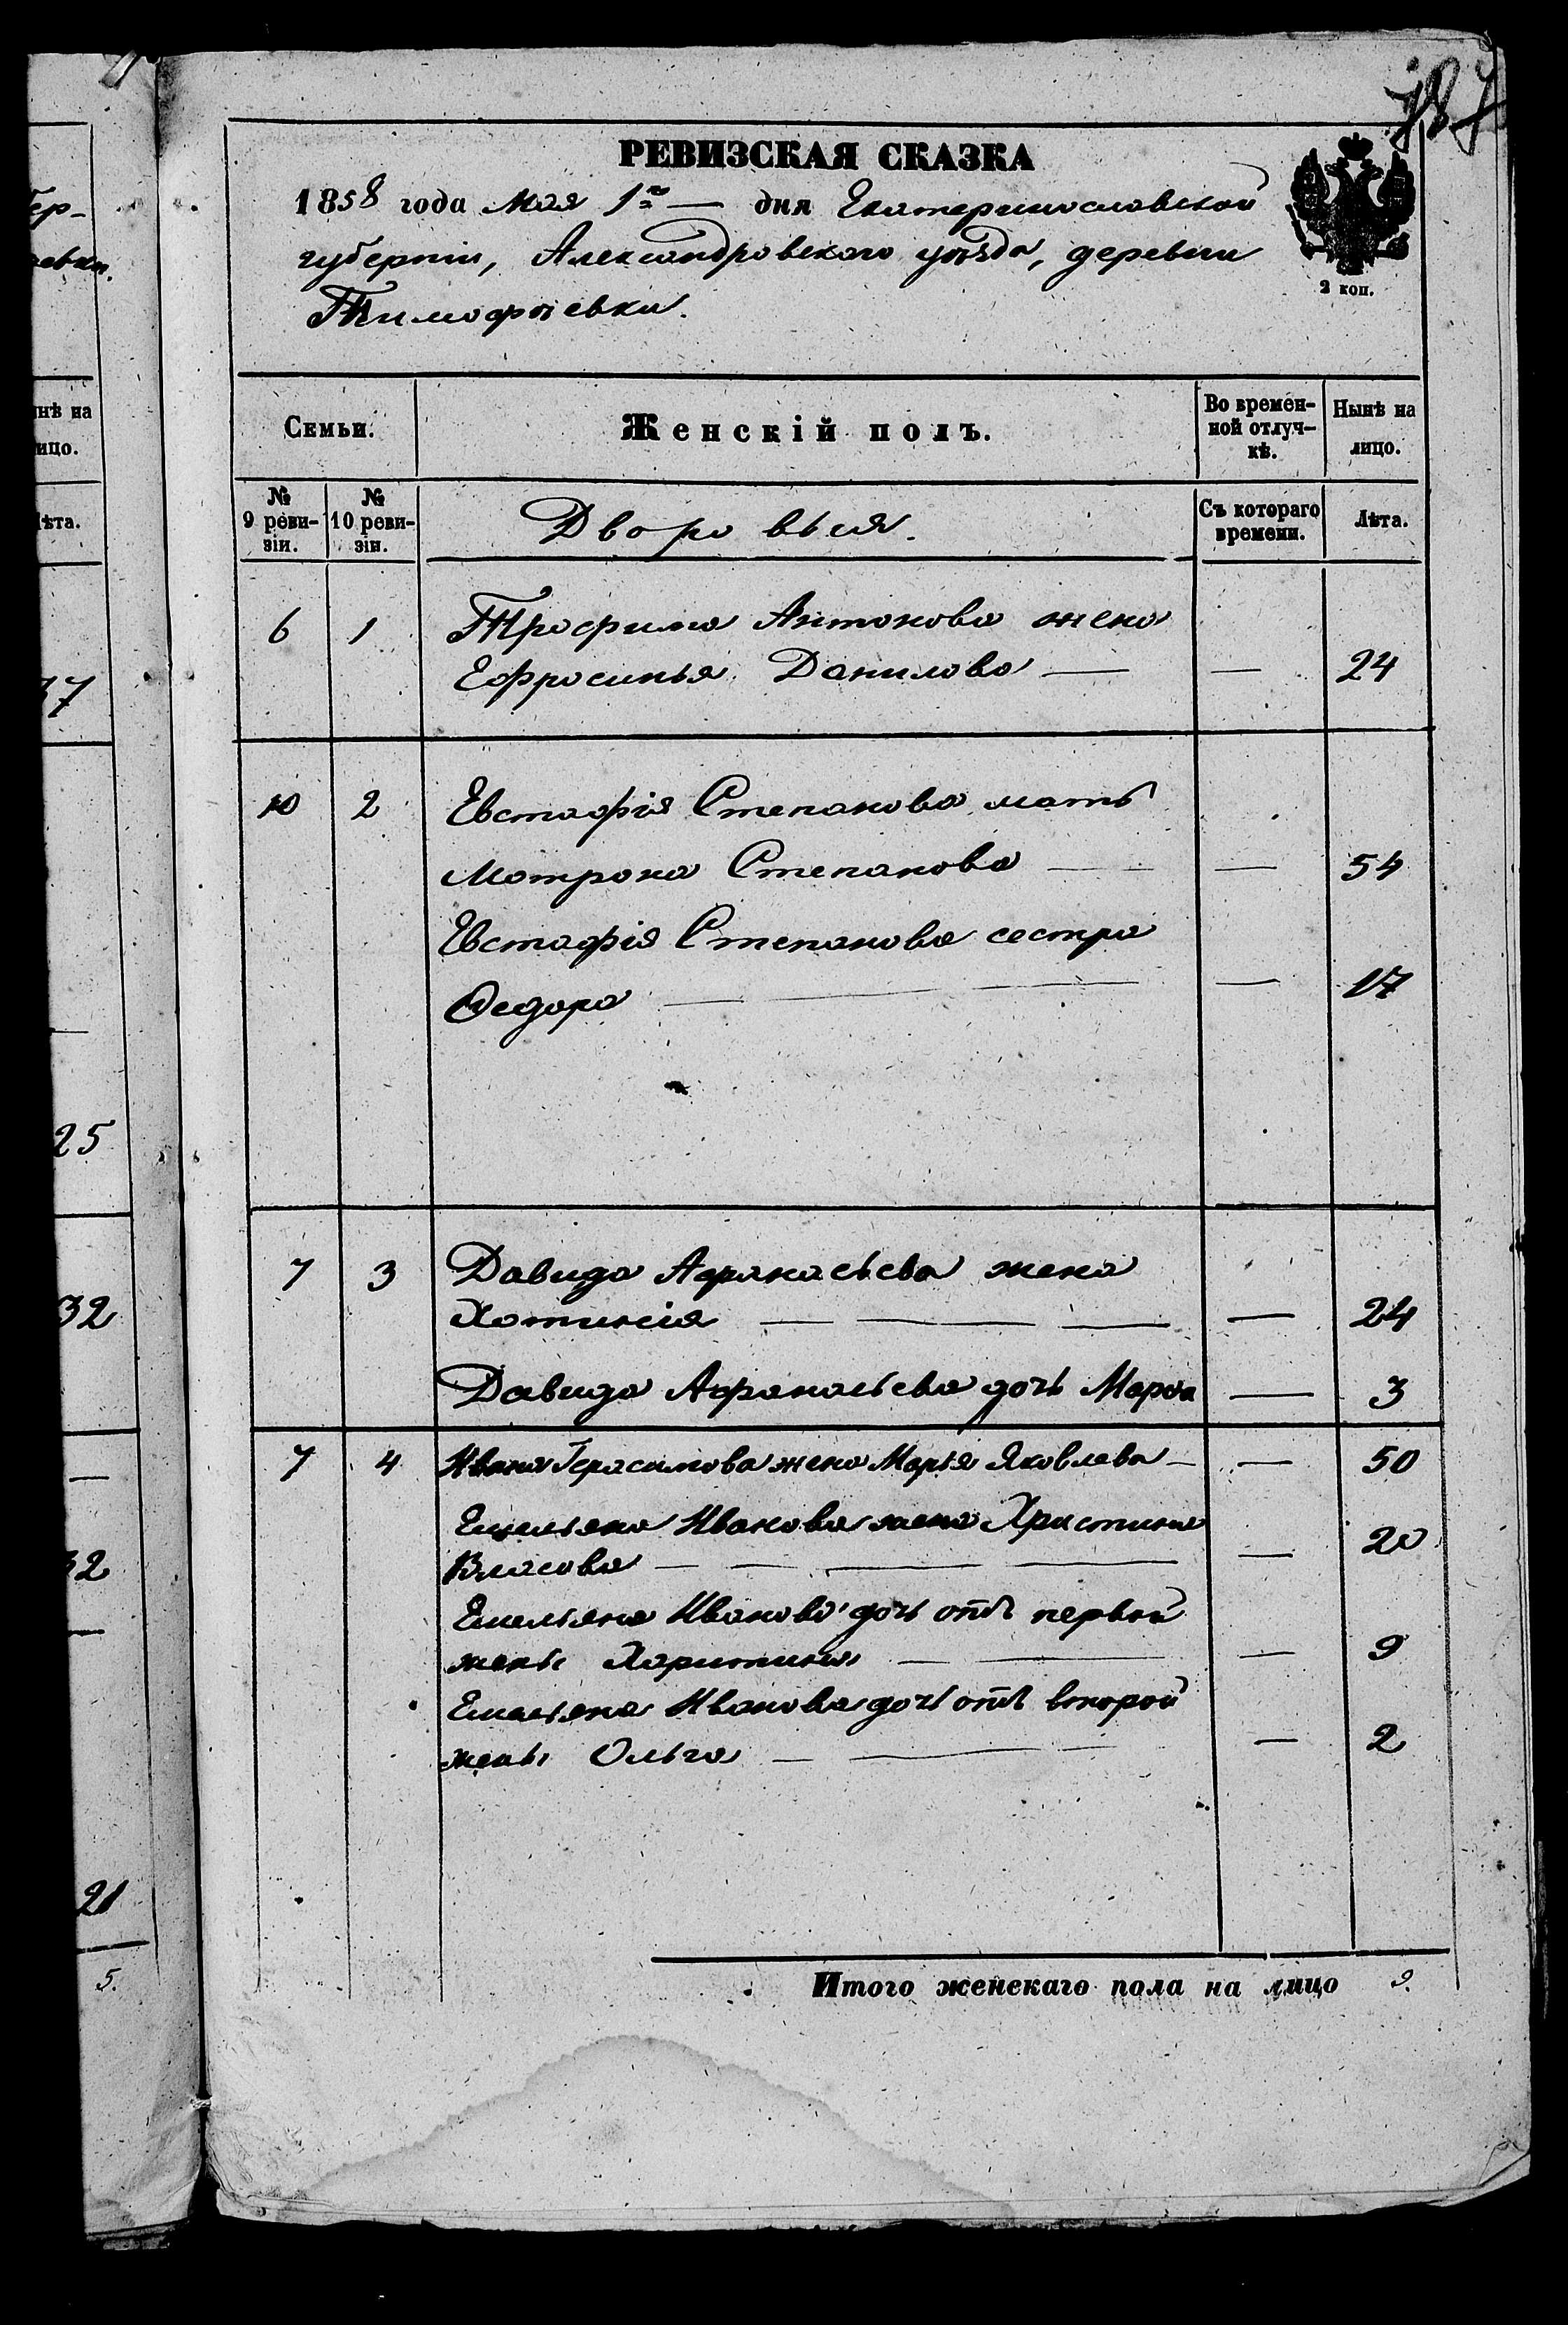 787
РЕВИЗСКАЯ СКАЗКА
1858 года Мая 1го — дня Екатеринославской
губерніи, Александровскаго уѣзда, деревни
Тимофѣевки.
2 коп.
Семьи.
Женскій полъ.
Во времен-
ной отлуч-
кѣ.
Нынѣ на
лицо.
№
9 реви-
зіи.
№
10 реви-
зіи.
Дворовыя.
Съ котораго
времени.
Лѣта.
6 1 Трофима Антонова жена
Ефросинья Данилова — — 24
10 2 Евстафія Степанова мать
Мотрона Степанова — — 54
Евстафія Степанова сестра
Ѳедора — — 17
7 3 Давида Афанасьева жена
Хотинія — — — — 24
Давида Афанасьева дочь Марѳа — 3
7 4 Ивана Герасимова жена Марья Яковлева — — 50
Емельяна Иванова жена Христина
Власова — — — 20
Емельяна Иванова дочь отъ первой
жены Харитина — — — 9
Емельяна Иванова дочь отъ второй
жены Ольга — — — 2
Итого женскаго пола на лицо 9.
бер-
евки.
нѣ на
ицо.
ѣта.
25
32
32
21
5.